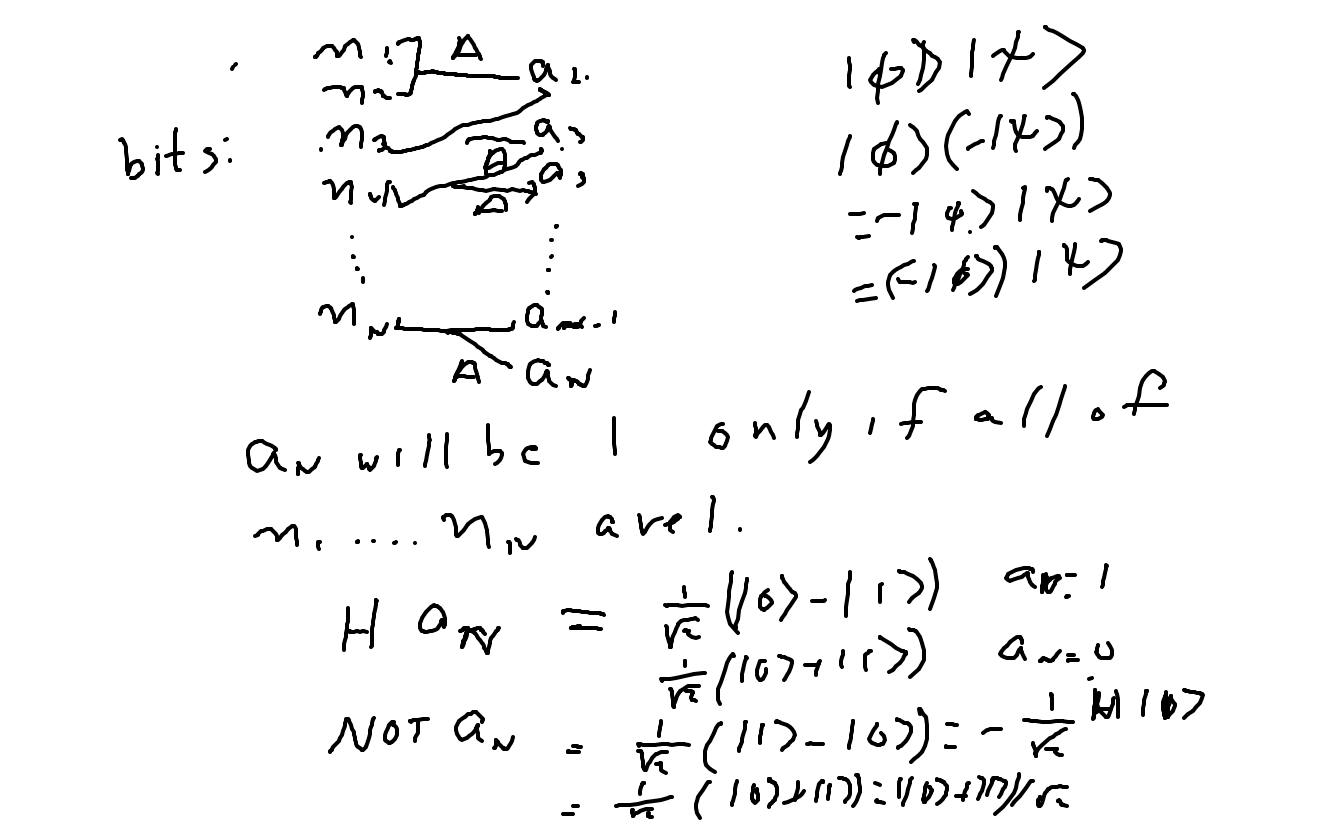 n₁ Δ a₂
n₂
bits: n₃ Δ a₃
n₄ Δ a₃
n_N a_{N-1}
Δ a_N
|ϕ⟩|ψ⟩
|ϕ⟩(-|ψ⟩)
=-|ϕ⟩|ψ⟩
=(-|ϕ⟩)|ψ⟩
a_N will be 1 only if all of
n₁ .... n_N are 1.
H a_N = 1/√2 (|0⟩-|1⟩) a_N=1
1/√2 (|0⟩+|1⟩) a_N=0
NOT a_N = 1/√2 (|1⟩-|0⟩) = - 1/√2 H|0⟩
= 1/√2 (|0⟩+|1⟩)=(|0⟩+|1⟩)/√2